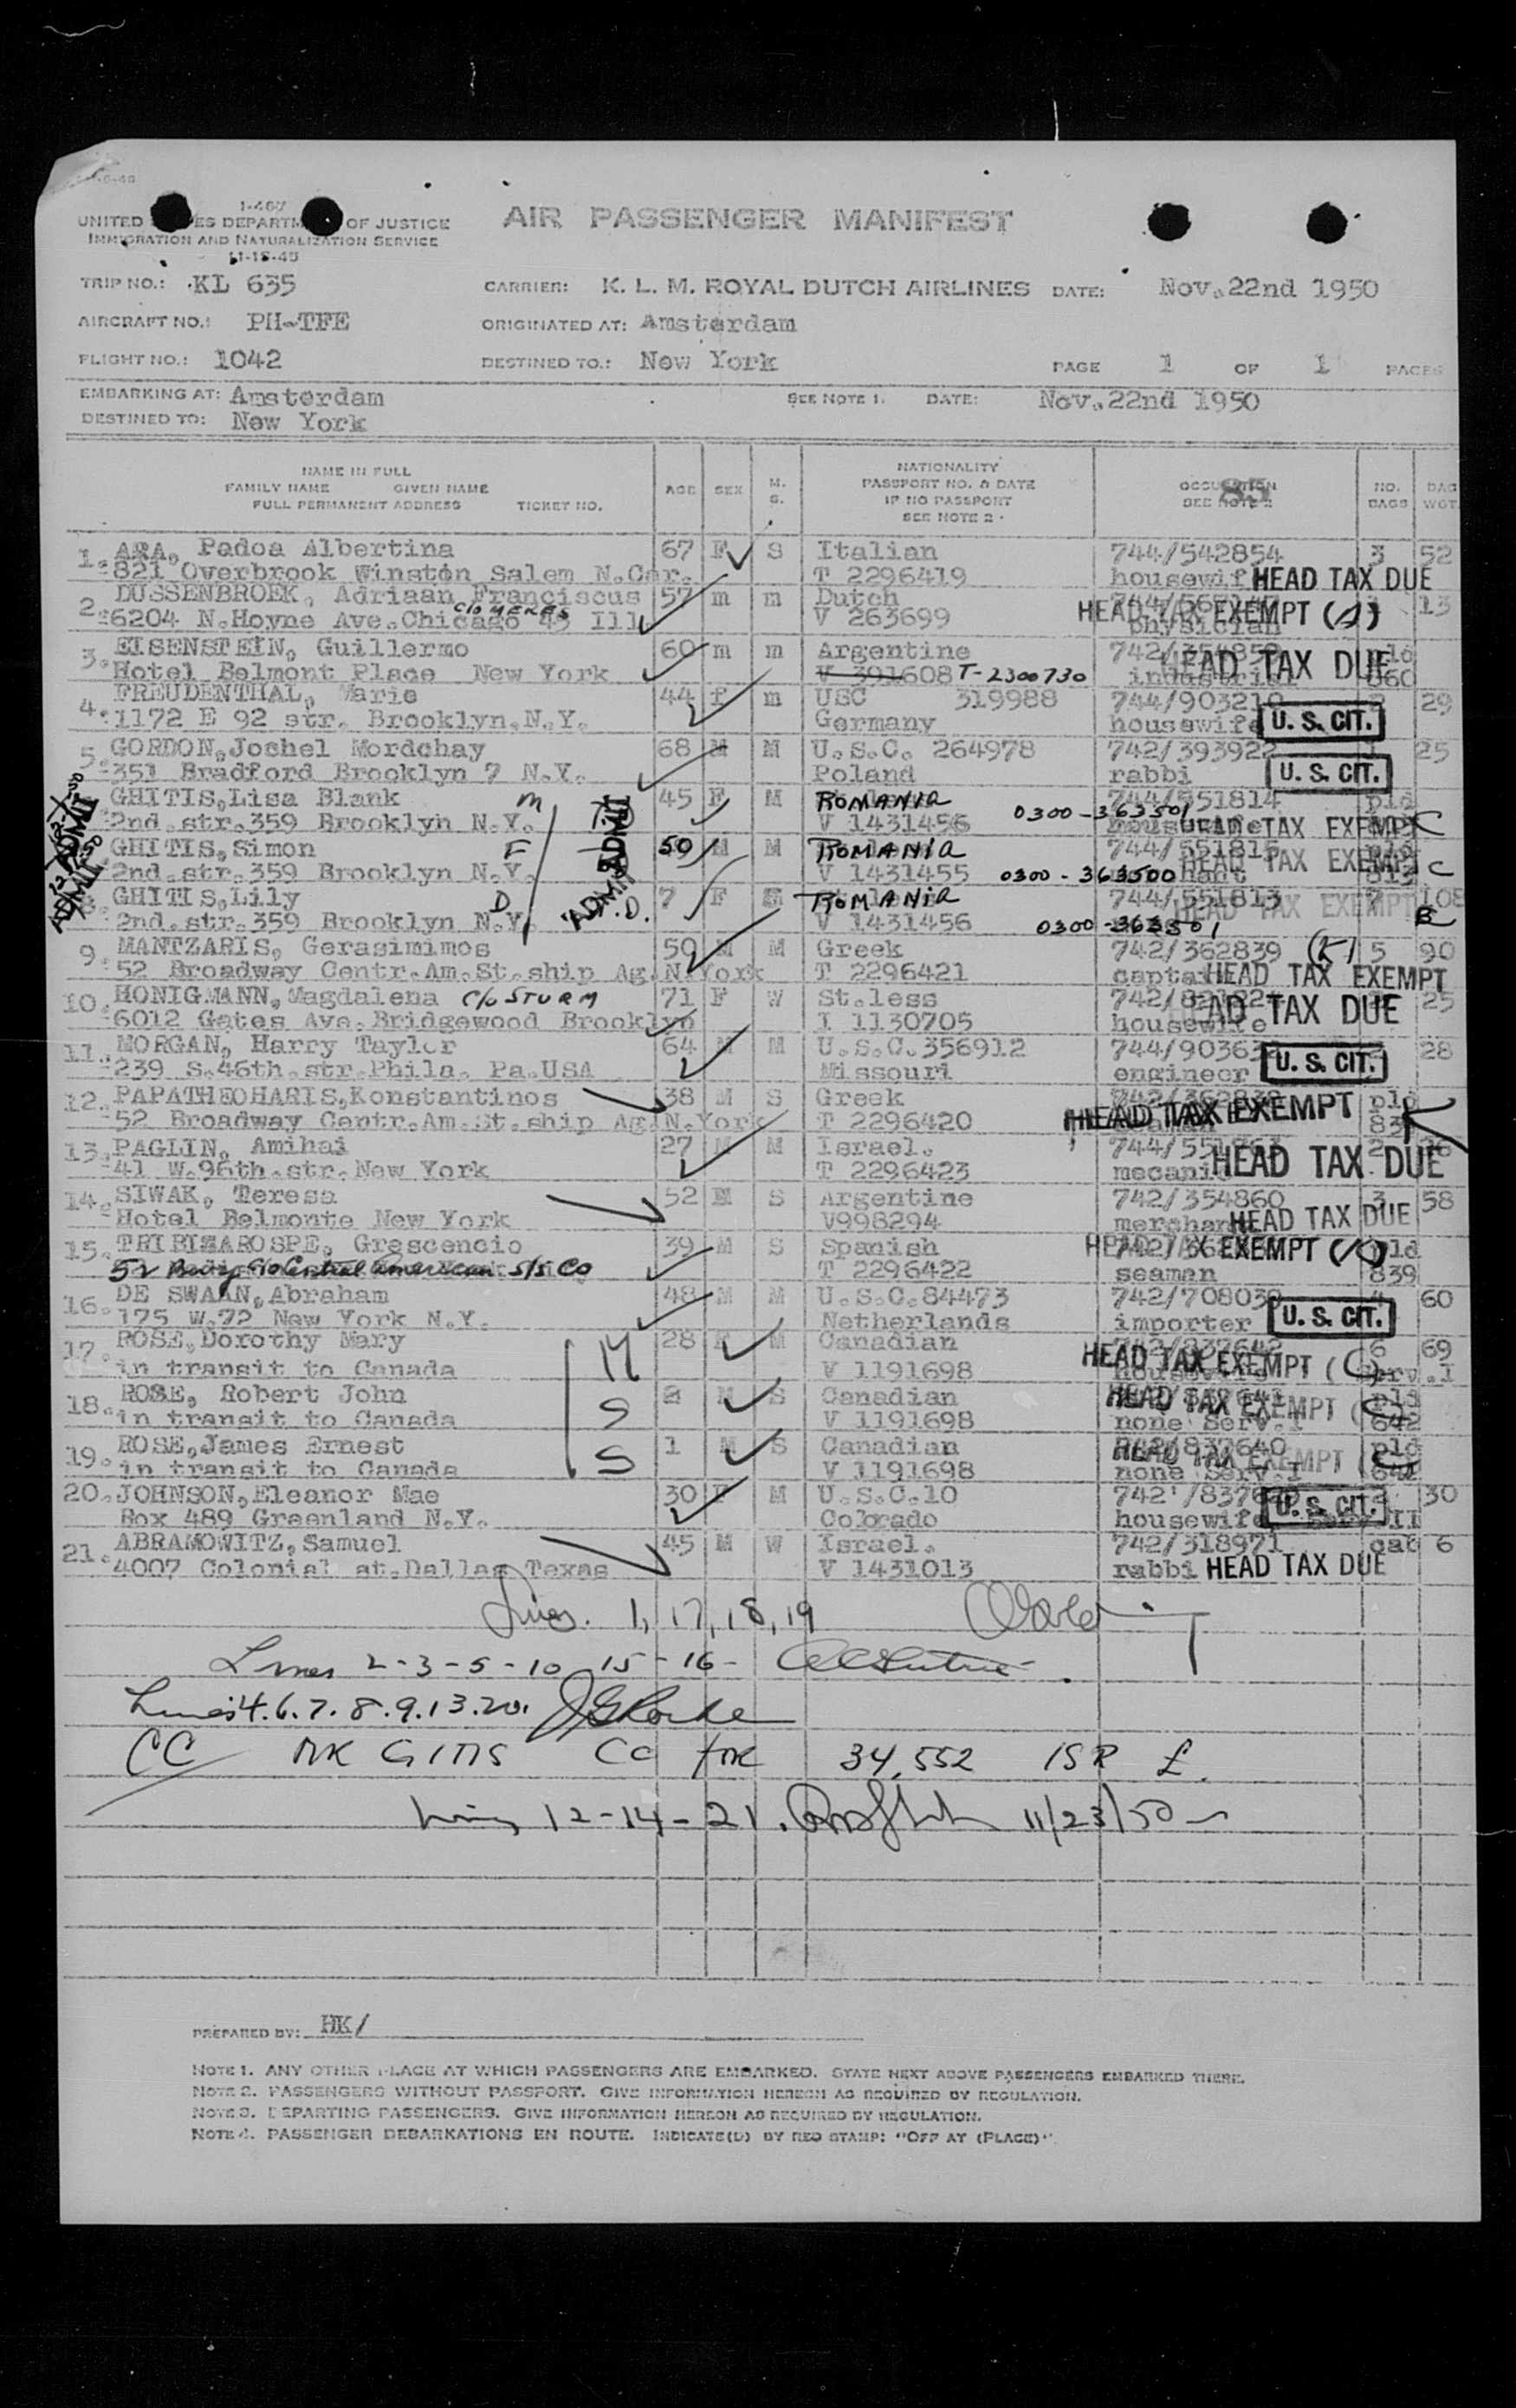 I-467
UNITED ES DEPARTM OF JUSTICE
IMMIGRATION AND NATURALIZATION SERVICE
11-18-45
AIR PASSENGER MANIFEST
TRIP NO.: KL 635 CARRIER: K. L. M. ROYAL DUTCH AIRLINES DATE: Nov.22nd 1950
AIRCRAFT NO.: PH-TFE ORIGINATED AT: Amsterdam
FLIGHT NO.: 1042 DESTINED TO.: New York PAGE 1 OF 1 PAGES
EMBARKING AT: Amsterdam SEE NOTE 1. DATE: Nov.22nd 1950
DESTINED TO: New York
NAME IN FULL
FAMILY NAME GIVEN NAME
FULL PERMANENT ADDRESS TICKET NO.
AGE SEX M. S.
NATIONALITY
PASSPORT NO. & DATE
IF NO PASSPORT
SEE NOTE 2
OCCUPATION
SEE NOTE 2
NO. BAGS
BAG WGT.
1. ARA, Padoa Albertina 67 F S Italian 744/542854 3 52
821 Overbrook Winston Salem N.Car. T 2296419 housewif HEAD TAX DUE
2. DUSSENBROEK, Adriaan Franciscus 57 m m Dutch 13
6204 N.Hoyne Ave.Chicago 45 Ill V 263699 physician HEAD TAX EXEMPT
3. EISENSTEIN, Guillermo 60 m m Argentine pld
Hotel Belmont Place New York V 391608 T-2300730 HEAD TAX DUE 060
4. FREUDENTHAL, Marie 44 f m USC 319988 744/903210 29
1172 E 92 str. Brooklyn.N.Y. Germany housewife U. S. CIT.
5. GORDON,Joshel Mordchay 68 M M U.S.C. 264978 742/393922 1 25
351 Bradford Brooklyn 7 N.Y. Poland rabbi U. S. CIT.
GHITIS,Lisa Blank M 45 F M ROMANIA 744/551814 pld
2nd.str.359 Brooklyn N.Y. V 1431456 0300-363501 HEAD TAX EXEMPT C
GHITIS,Simon F 50 M M ROMANIA 744/551815
2nd.str.359 Brooklyn N.Y. V 1431455 0300-363500 HEAD TAX EXEMPT C
8. GHITIS,Lily D 7 F S ROMANIA 744/551813 7 105
2nd.str.359 Brooklyn N.Y. V 1431456 0300-363501 HEAD TAX EXEMPT B
9. MANTZARIS, Gerasimimos 50 M M Greek 742/362839 (K) 5 90
52 Broadway Centr.Am.St.ship Ag.N.York T 2296421 capta HEAD TAX EXEMPT
10. HONIGMANN,Magdalena C/o STURM 71 F W St.less 25
6012 Gates Ave.Bridgewood Brooklyn I 1130705 housewife HEAD TAX DUE
11. MORGAN, Harry Taylor 64 M M U.S.C.356912 28
239 S.46th.str.Phila. Pa.USA Missouri engineer U. S. CIT.
12. PAPATHEOHARIS,Konstantinos 38 M S Greek pld
52 Broadway Centr.Am.St.ship Ag.N.York T 2296420 HEAD TAX EXEMPT 83
13. PAGLIN, Amihai 27 M M Israel. 2
41 W.96th.str.New York T 2296423 mecani HEAD TAX DUE
14. SIWAK, Teresa 52 M S Argentine 742/354860 3 58
Hotel Belmonte New York V998294 merchan HEAD TAX DUE
15. TRIBIZAROSPE, Grescencio 39 M S Spanish pld
52 Bwy c/o Central american S/S Co T 2296422 seaman HEAD TAX EXEMPT 839
16. DE SWAAN,Abraham 48 M M U.S.C.84473 742/708039 4 60
175 W.72 New York N.Y. Netherlands importer U. S. CIT.
17. ROSE,Dorothy Mary M 28 F M Canadian 742/837642 6 69
in transit to Canada V 1191698 HEAD TAX EXEMPT (C) erv.I
18. ROSE, Robert John S 2 M S Canadian pld
in transit to Canada V 1191698 none Serv.I HEAD TAX EXEMPT 642
19. ROSE,James Ernest S 1 M S Canadian 742/837640 pld
in transit to Canada V 1191698 none Serv.I HEAD TAX EXEMPT 642
20. JOHNSON,Eleanor Mae 30 F M U.S.C.10 2 30
Box 489 Greenland N.Y. Colorado housewife U. S. CIT.
21. ABRAMOWITZ,Samuel 45 M W Israel. 742/318971 cab 6
4007 Colonial at.Dallas Texas V 1431013 rabbi HEAD TAX DUE
Lines. 1, 17, 18, 19
Lines 2-3-5-10 15-16-
Lines 4.6.7.8.9.13.20.
CC 34,552 ISR £
Lines 12-14-21. 11/23/50
PREPARED BY: HK/
NOTE 1. ANY OTHER PLACE AT WHICH PASSENGERS ARE EMBARKED. STATE NEXT ABOVE PASSENGERS EMBARKED THERE.
NOTE 2. PASSENGERS WITHOUT PASSPORT. GIVE INFORMATION HEREON AS REQUIRED BY REGULATION.
NOTE 3. DEPARTING PASSENGERS. GIVE INFORMATION HEREON AS REQUIRED BY REGULATION.
NOTE 4. PASSENGER DEBARKATIONS EN ROUTE. INDICATE(D) BY RED STAMP: "OFF AT (PLACE)".